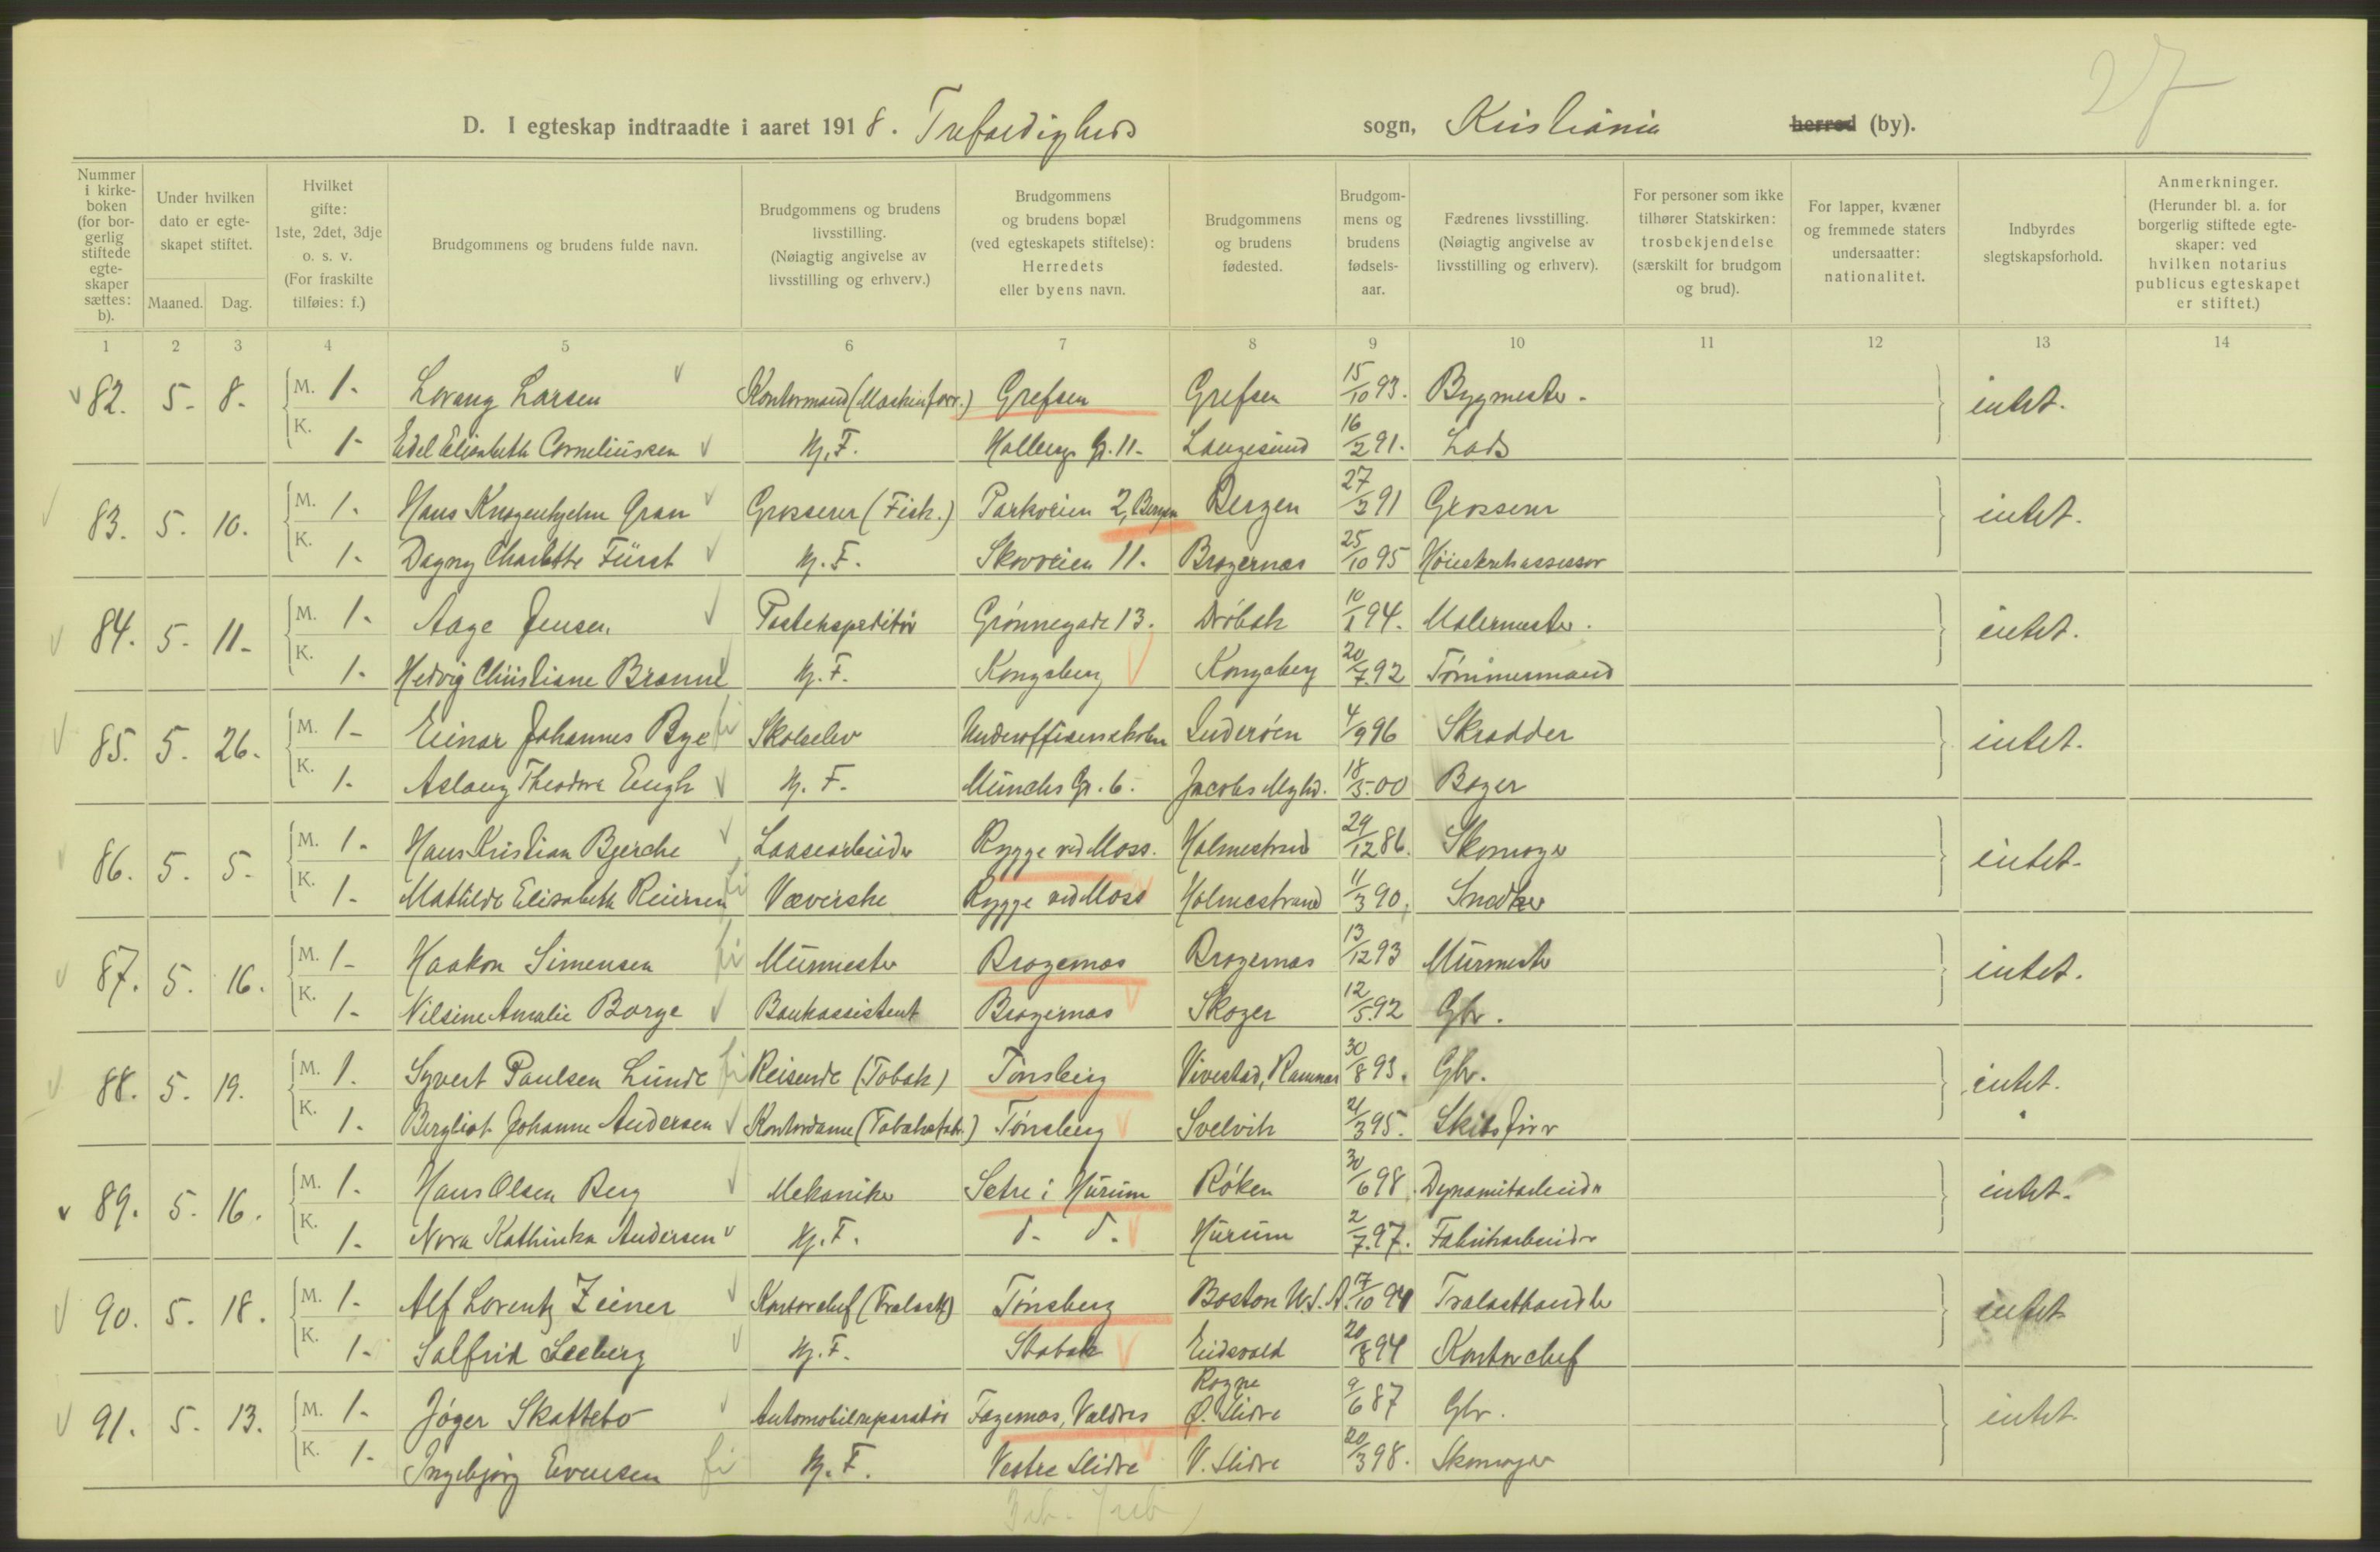 27
D. I egteskap indtraadte i aaret 1918. Trefoldigheds sogn, Kristiania herred (by).
Nummer i kirkeboken (for borgerlig stiftede egteskaper sættes: b).
Under hvilken dato er egteskapet stiftet.
Maaned. Dag.
Hvilket gifte: 1ste, 2det, 3dje o. s. v. (For fraskilte tilføies: f.)
Brudgommens og brudens fulde navn.
Brudgommens og brudens livsstilling. (Nøiagtig angivelse av livsstilling og erhverv.)
Brudgommens og brudens bopæl (ved egteskapets stiftelse): Herredets eller byens navn.
Brudgommens og brudens fødested.
Brudgommens og brudens fødselsaar.
Fædrenes livsstilling. (Nøiagtig angivelse av livsstilling og erhverv).
For personer som ikke tilhører Statskirken: trosbekjendelse (særskilt for brudgom og brud).
For lapper, kvæner og fremmede staters undersaatter: nationalitet.
Indbyrdes slegtskapsforhold.
Anmerkninger. (Herunder bl. a. for borgerlig stiftede egteskaper: ved hvilken notarius publicus egteskapet er stiftet.)
1 2 3 4 5 6 7 8 9 10 11 12 13 14
82. 5. 8. M. 1. Lorang Larsen Kontormand (Maskinforr.) Grefsen Grefsen 15/10 93. Bygmester. intet.
K. 1. Edel Elisabeth Corneliussen Hj. F. Holbergs G. 11. Langesund 16/2 91. Lods
83. 5. 10. M. 1. Hans Knagenhjelm Gran Grosserer (Fisk.) Parkveien 2, Bergen Bergen 27/3 91 Grosserer intet.
K. 1. Dagny Charlotte Fürst Hj. F. Skovveien 11. Bragernæs 25/10 95 Høiesteretsassessor
84. 5. 11. M. 1. Aage Jensen Postekspeditør Grønnegade 13. Drøbak 10/1 94. Malermester. intet.
K. 1. Hedvig Christiane Brænne Hj. F. Kongsberg Kongsberg 20/7 92 Tømmermand
85. 5. 26. M. 1. Einar Johannes Bye Skoleelev Underofficerskolen Inderøen 4/9 96 Skrædder intet.
K. 1. Aslaug Theodora Engh Hj. F. Munchs G. 6. Jacobs Mghd. 18/5 00 Bager
86. 5. 5. M. 1. Hans Kristian Bjerche Laasearbeider Rygge ved Moss. Holmestrand 29/12 86. Skomager intet.
K. 1. Mathilde Elisabeth Reiersen Væverske Rygge ved Moss Holmestrand 11/3 90. Snedker
87. 5. 16. M. 1. Haakon Simensen Murmester Bragernæs Bragernæs 13/12 93 Murmester intet.
K. 1. Nilsine Amalie Borge Bankassistent Bragernæs Skoger 12/5 92 Gbr.
88. 5. 19. M. 1. Syvert Paulsen Lunde Reisende (Tobak) Tønsberg Vivestad, Ramnæs 30/8 93. Gbr. intet.
K. 1. Bergliot Johanne Andersen Kontordame (Tobaksfabr.) Tønsberg Svelvik 21/3 95. Skibsfører
89. 5. 16. M. 1. Hans Olsen Berg Mekaniker Sætre i Hurum Røken 30/6 98 Dynamitarbeider intet.
K. 1. Nora Kathinka Andersen Hj. F. d. d. Hurum 2/7 97. Fabrikarbeider
90. 5. 18. M. 1. Alf Lorentz Zeiner Kontorchef (Trælast) Tønsberg Boston U.S.A. 17/10 94 Trælasthandler intet
K. 1. Solfrid Seeberg Hj. F. Stabæk Eidsvold 20/8 94 Kontorchef
91. 5. 13. M. 1. Jøger Skattebo Automobilreparatør Fagernæs, Valdres Rogne Ø. Slidre 9/6 87 Gbr. intet
K. 1. Ingebjørg Evensen Hj. F. Vestre Slidre V. Slidre 20/3 98. Skomager